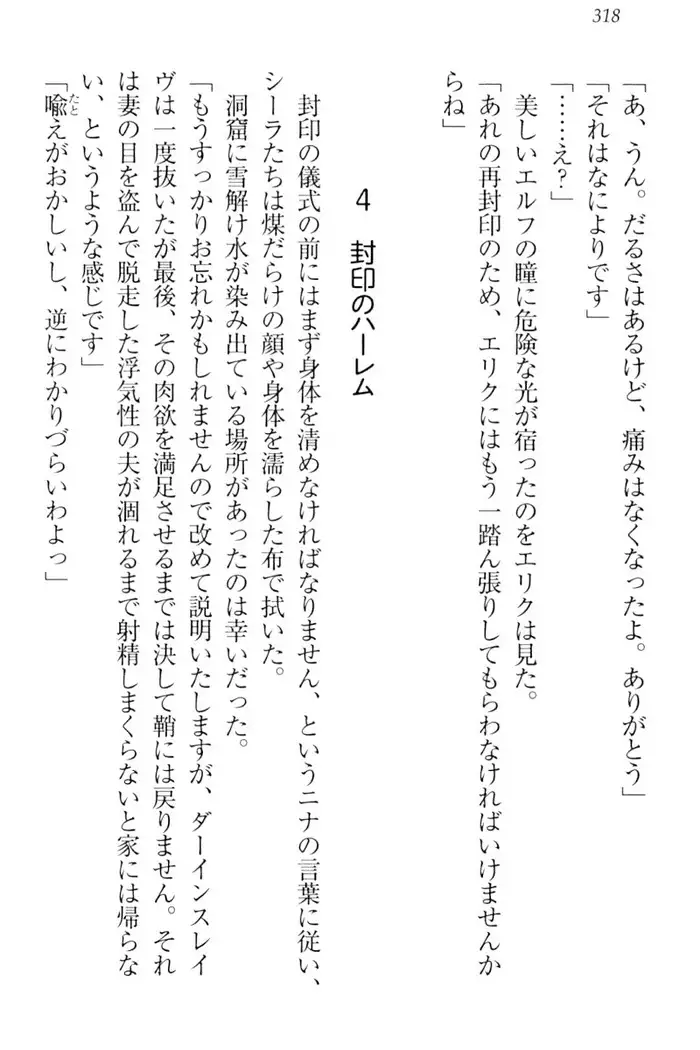 318
「あ、うん。だるさはあるけど、痛みはなくなったよ。ありがとう」
「それはなによりです」
「……え？」
　美しいエルフの瞳に危険な光が宿ったのをエリクは見た。
「あれの再封印のため、エリクにはもう一踏ん張りしてもらわなければいけませんか
らね」
4　封印のハーレム
　封印の儀式の前にはまず身体を清めなければなりません、というニナの言葉に従い、
シーラたちは煤だらけの顔や身体を濡らした布で拭いた。
　洞窟に雪解け水が染み出ている場所があったのは幸いだった。
「もうすっかりお忘れかもしれませんので改めて説明いたしますが、ダーインスレイ
ヴは一度抜いたが最後、その肉欲を満足させるまでは決して鞘には戻りません。それ
は妻の目を盗んで脱走した浮気性の夫が涸れるまで射精しまくらないと家には帰らな
い、というような感じです」
「喩えがおかしいし、逆にわかりづらいわよっ」
たと